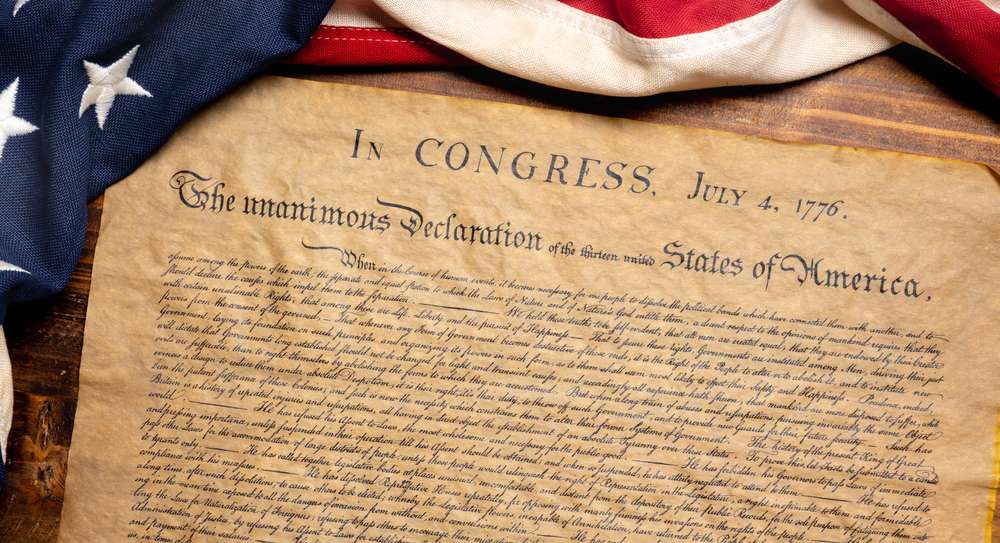 In CONGRESS, July 4, 1776.
The unanimous Declaration of the thirteen united States of America,
When in the Course of human events, it becomes necessary for one people to dissolve the political bands which have connected them with another, and to
assume among the powers of the earth, the separate and equal station to which the Laws of Nature and of Nature's God entitle them, a decent respect to the opinions of mankind requires that they
should declare the causes which impel them to the separation. — We hold these truths to be self-evident, that all men are created equal, that they are endowed by their Creator
with certain unalienable Rights, that among these are Life, Liberty and the pursuit of Happiness. — That to secure these rights, Governments are instituted among Men, deriving their just
powers from the consent of the governed, — That whenever any Form of Government becomes destructive of these ends, it is the Right of the People to alter or to abolish it, and to institute new
Government, laying its foundation on such principles and organizing its powers in such form, as to them shall seem most likely to effect their Safety and Happiness. Prudence, indeed,
will dictate that Governments long established should not be changed for light and transient causes; and accordingly all experience hath shewn, that mankind are more disposed to suffer, while
evils are sufferable, than to right themselves by abolishing the forms to which they are accustomed. But when a long train of abuses and usurpations, pursuing invariably the same Object
evinces a design to reduce them under absolute Despotism, it is their right, it is their duty, to throw off such Government, and to provide new Guards for their future security. — Such has
been the patient sufferance of these Colonies; and such is now the necessity which constrains them to alter their former Systems of Government. The history of the present King of Great
Britain is a history of repeated injuries and usurpations, all having in direct object the establishment of an absolute Tyranny over these States. To prove this, let Facts be submitted to a candid
world. — He has refused his Assent to Laws, the most wholesome and necessary for the public good. — He has forbidden his Governors to pass Laws of immediate
and pressing importance, unless suspended in their operation till his Assent should be obtained; and when so suspended, he has utterly neglected to attend to them. — He has refused to
pass other Laws for the accommodation of large districts of people, unless those people would relinquish the right of Representation in the Legislature, a right inestimable to them and formidable
to tyrants only. — He has called together legislative bodies at places unusual, uncomfortable, and distant from the depository of their Public Records, for the sole purpose of fatiguing them into
compliance with his measures. — He has dissolved Representative Houses repeatedly, for opposing with manly firmness his invasions on the rights of the people.
long time, after such dissolutions, to cause others to be elected; whereby the Legislative powers, incapable of Annihilation, have returned to the People
in the mean time exposed to all the dangers of invasion from without, and convulsions within.
ling the Laws for Naturalization of Foreigners; refusing to pass others to encourage their
Administration of Justice, by refusing his Assent to Laws for establishing
and payment of their